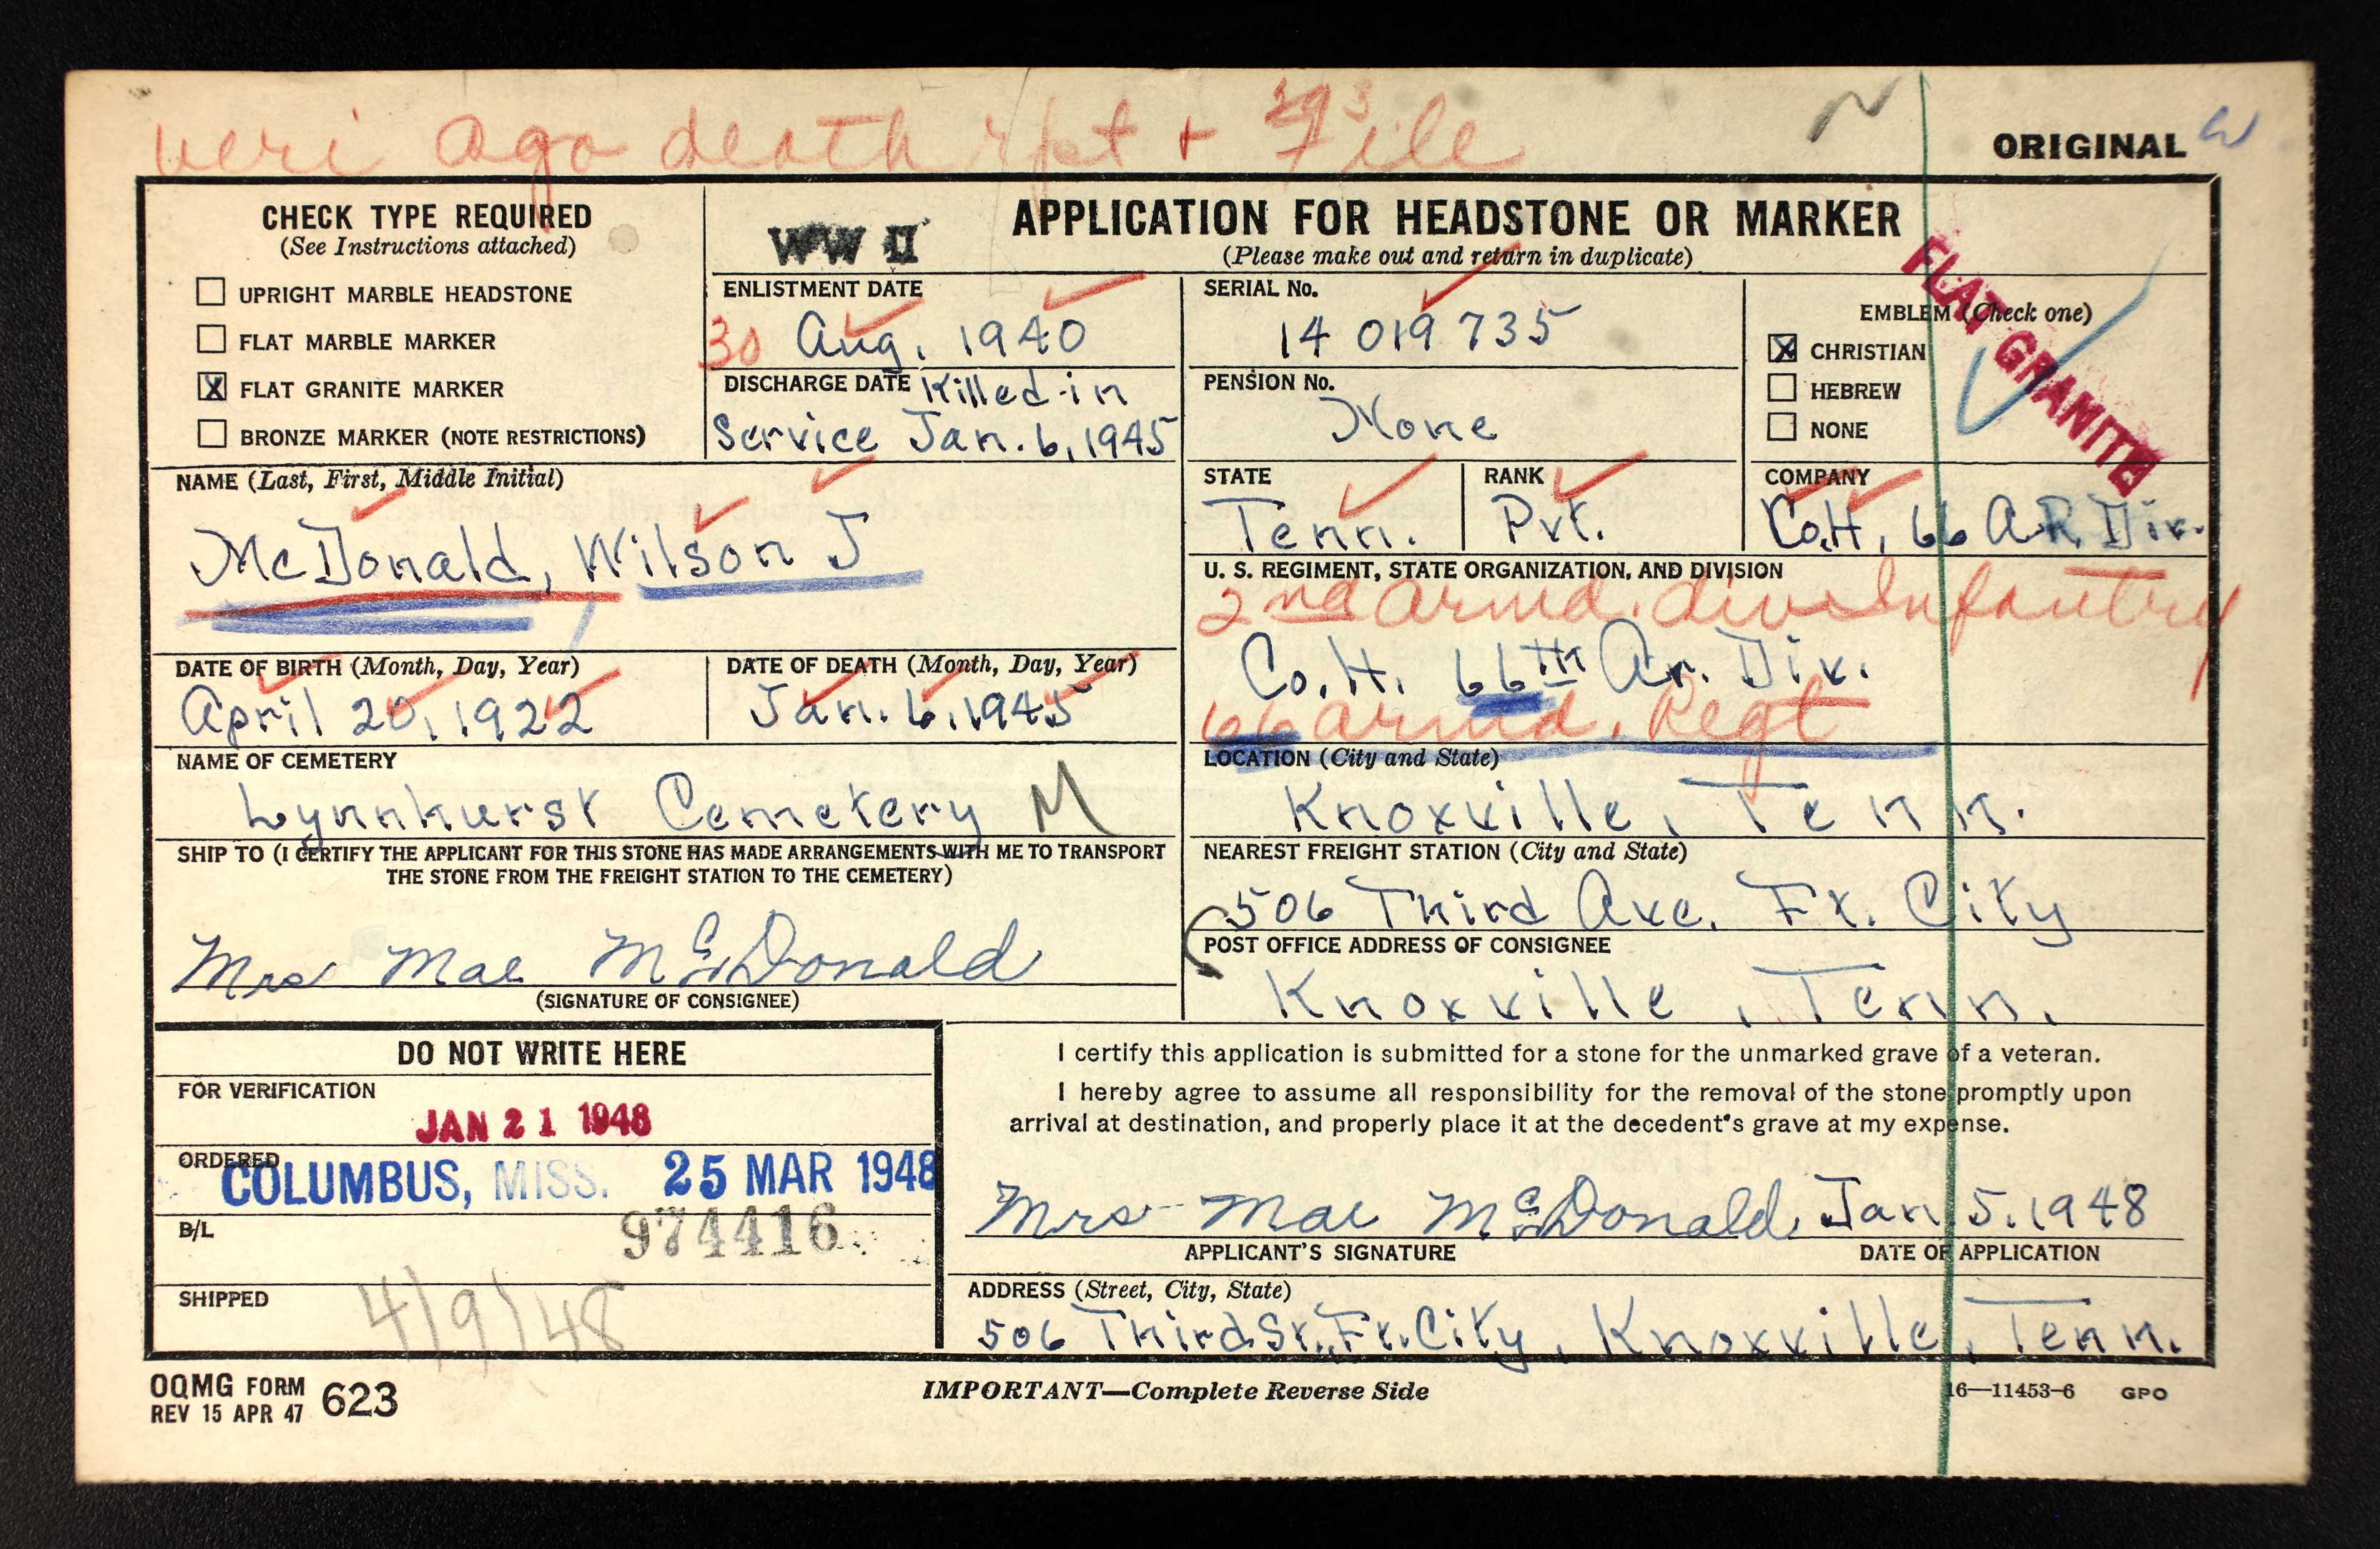 veri ago death rpt + File
293
N
ORIGINAL
W
CHECK TYPE REQUIRED
(See Instructions attached)
UPRIGHT MARBLE HEADSTONE
FLAT MARBLE MARKER
X FLAT GRANITE MARKER
BRONZE MARKER (NOTE RESTRICTIONS)
WW II
APPLICATION FOR HEADSTONE OR MARKER
(Please make out and return in duplicate)
ENLISTMENT DATE
30 Aug. 1940
DISCHARGE DATE Killed in
Service Jan. 6, 1945
SERIAL No.
14 019 735
PENSION No.
None
EMBLEM (Check one)
X CHRISTIAN
HEBREW
NONE
FLAT GRANITE
NAME (Last, First, Middle Initial)
McDonald, Wilson J
STATE
Tenn.
RANK
Pvt.
COMPANY
Co.H, 66 AR. Div.
U. S. REGIMENT, STATE ORGANIZATION, AND DIVISION
2nd Armd. div Infantry
Co. H. 66TH Ar. Div.
66 Armd. Regt
DATE OF BIRTH (Month, Day, Year)
April 20, 1922
DATE OF DEATH (Month, Day, Year)
Jan. 6, 1945
NAME OF CEMETERY
Lynnhurst Cemetery M
LOCATION (City and State)
Knoxville, Tenn.
SHIP TO (I CERTIFY THE APPLICANT FOR THIS STONE HAS MADE ARRANGEMENTS WITH ME TO TRANSPORT
THE STONE FROM THE FREIGHT STATION TO THE CEMETERY)
Mrs Mae McDonald
(SIGNATURE OF CONSIGNEE)
NEAREST FREIGHT STATION (City and State)
506 Third Ave. Ft. City
POST OFFICE ADDRESS OF CONSIGNEE
Knoxville, Tenn.
DO NOT WRITE HERE
FOR VERIFICATION
JAN 21 1948
ORDERED
COLUMBUS, MISS. 25 MAR 1948
B/L
974416
SHIPPED
4/9/48
I certify this application is submitted for a stone for the unmarked grave of a veteran.
I hereby agree to assume all responsibility for the removal of the stone promptly upon
arrival at destination, and properly place it at the decedent's grave at my expense.
Mrs Mae McDonald, Jan. 5, 1948
APPLICANT'S SIGNATURE
DATE OF APPLICATION
ADDRESS (Street, City, State)
506 Third St., Ft. City, Knoxville, Tenn.
OQMG FORM 623
REV 15 APR 47
IMPORTANT—Complete Reverse Side
16—11453-6 GPO